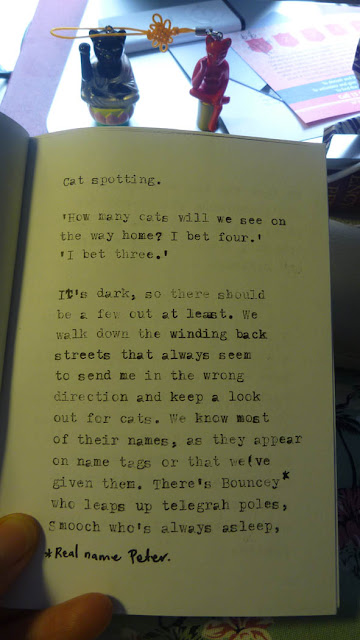 Cat spotting.
'How many cats will we see on
the way home? I bet four.'
'I bet three.'
It's dark, so there should
be a few out at least. We
walk down the winding back
streets that always seem
to send me in the wrong
direction and keep a look
out for cats. We know most
of their names, as they appear
on name tags or that we've
given them. There's Bouncey*
who leaps up telegrah poles,
Smooch who's always asleep,
*Real name Peter.